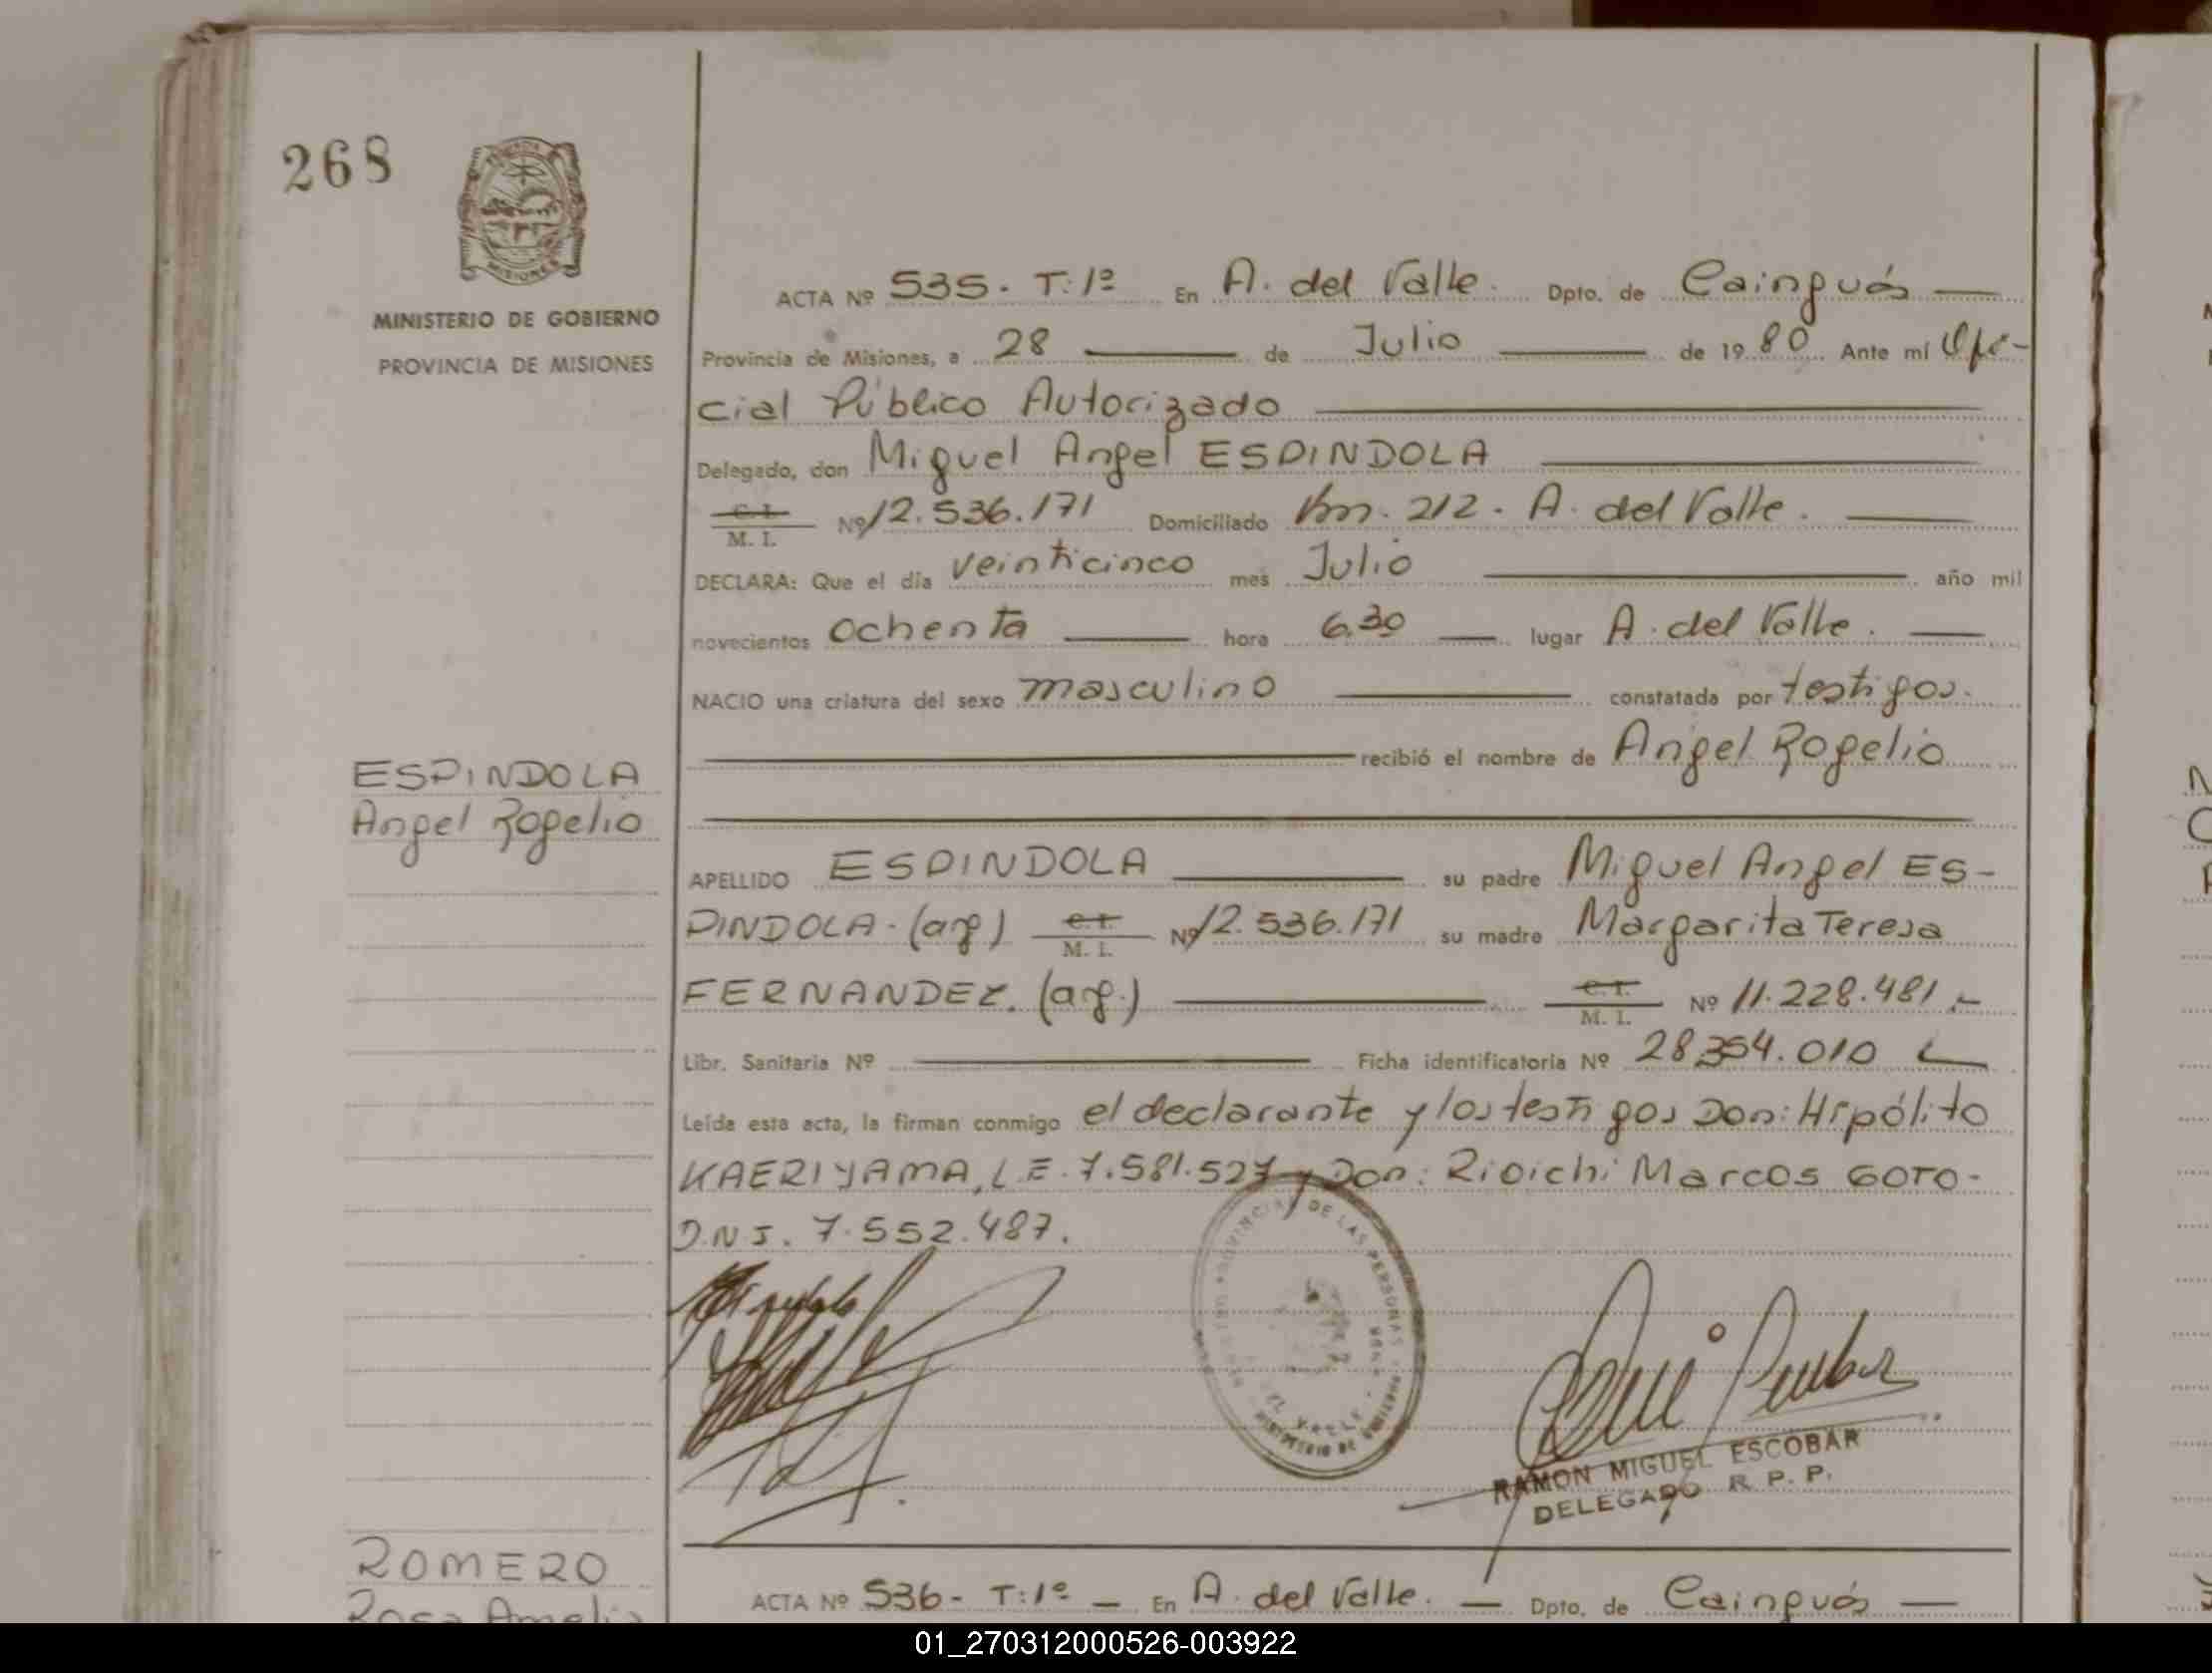 268
MINISTERIO DE GOBIERNO
PROVINCIA DE MISIONES
ACTA Nº 535. T:1º En A. del Valle. Dpto. de Cainguás
Provincia de Misiones, a 28 de Julio de 1980 Ante mí Ofi-
cial Público Autorizado
Delegado, don Miguel Angel ESPINDOLA
C. I. M. I. Nº 12.536.171 Domiciliado Km. 212. A. del Valle.
DECLARA: Que el día veinticinco mes Julio año mil
novecientos ochenta hora 6.30 lugar A. del Valle.
NACIO una criatura del sexo masculino constatada por testigos.
recibió el nombre de Angel Rogelio
ESPINDOLA
Angel Rogelio
APELLIDO ESPINDOLA su padre Miguel Angel ES-
PINDOLA-(arg) C. I. M. I. Nº 12.536.171 su madre Margarita Teresa
FERNANDEZ. (arg.) C. I. M. I. Nº 11.228.481.-
Libr. Sanitaria Nº Ficha identificatoria Nº 28.354.010
Leída esta acta, la firman conmigo el declarante y los testigos Don: Hipólito
KAERIYAMA, L.E. 7.581.527 y Don: Rioichi Marcos GOTO-
D.N.I. 7.552.487.
PROVINCIA DE LAS PERSONAS
DEL VALLE
MINISTERIO DE GOBIERNO
RAMON MIGUEL ESCOBAR
DELEGADO R. P. P.
ROMERO
Rosa Amelia
ACTA Nº 536- T:1º - En A. del Valle. - Dpto. de Cainguás
01_270312000526-003922